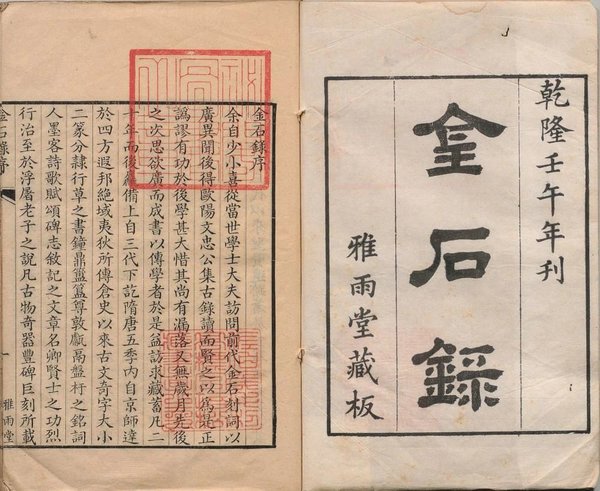 乾隆壬午年刊
金石録
雅雨堂藏板
金石錄序
余自少小喜從當世學士大夫訪問前代金石刻詞以
廣異聞後得歐陽文忠公集古錄讀而賢之以爲是正
譌謬有功於後學甚大惜其尚有漏落又無歲月先後
之次思欲廣而成書以傳學者於是益訪求藏蓄凡二
十年而後麤備上自三代下訖隋唐五季內自京師達
於四方遐邦絕域夷狄所傳倉史以來古文奇字大小
二篆分隸行草之書鐘鼎簠簋尊敦甗鬲盤杅之銘詞
人墨客詩歌賦頌碑志敘記之文章名卿賢士之功烈
行治至於浮屠老子之說凡古物奇器豐碑巨刻所載
金石錄序
雅雨堂